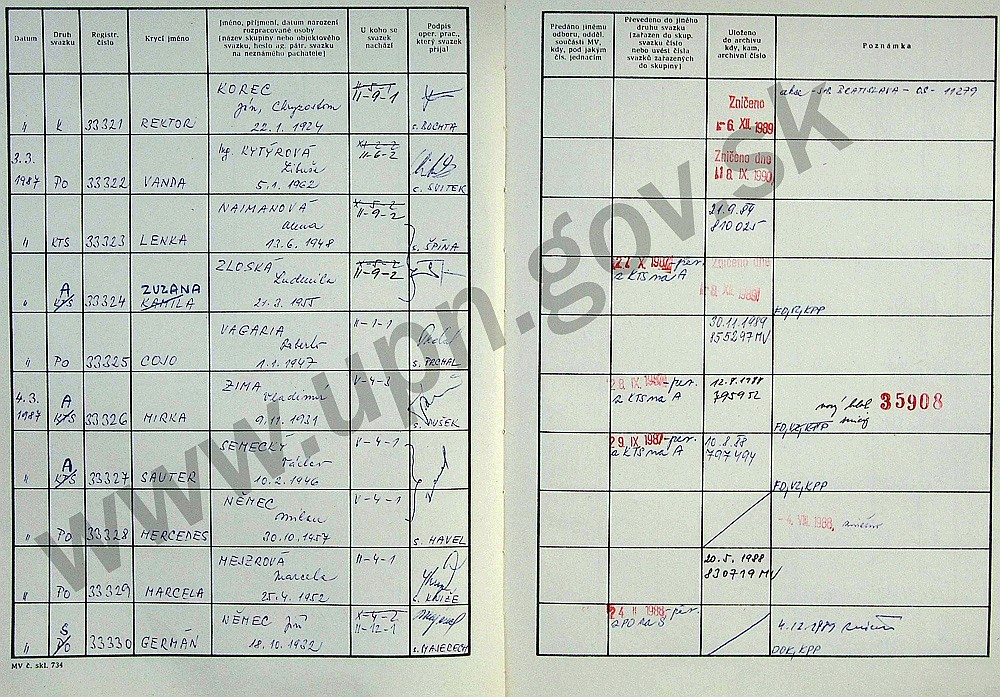 Datum
Druh svazku
Registr. číslo
Krycí jméno
Jméno, příjmení, datum narození
rozpracované osoby
(název skupiny nebo objektového
svazku, heslo ag. pátr. svazku
na neznámého pachatele)
U koho se
svazek
nachází
Podpis
oper. prac.,
který svazek
přijal
Předáno jinému
odboru, odděl.
součásti MV,
kdy, pod jakým
čís. jednacím
Převedeno do jiného
druhu svazku
(zařazen do skup.
svazku číslo
nebo uvést čísla
svazků zařazených
do skupiny)
Uloženo
do archivu
kdy, kam,
archivní číslo
Poznámka
KOREC
II-9-1
Zničeno
SNB BRATISLAVA - OS - 11279
" K 33321 REKTOR 22.1.1924 s. BOCHTA
6. XII. 1989
3.3. Ing. KYTÝROVÁ II-6-2
Libuše Zničeno dne
1987 PO 33322 VANDA 5.1.1962 s. SVITEK
18. IX. 1990
NAIMANOVÁ X-5-2
II-9-2
21.9.89
810025
" KTS 33323 LENKA 13.6.1948 s. ŠPÍNA
ZLOSKÁ II-9-2
Ludmila
27. X 1987 - per.
z KTS na A
Zničeno dne
8. XII. 1989
A ZUZANA
" KTS 33324 KAMILA 21.3.1955
EO, VZ, KPP
VAGARIA II-1-1
Roberto
30.11.1989
855297 MV
" PO 33325 COJO 1.1.1947 s. PRCHAL
4.3. A ZIMA V-4-3
Vladimír
28. IX. 1987 - per.
z KTS na A
12.8.1988
795952
nový blok 35908
1987 KTS 33326 MIRKA 9.11.1931 s. DUŠEK
EO, VZ, KPP
A SEMECKÝ V-4-1
Václav
29. IX 1987 - per.
z KTS na A
10.8.88
797494
" KTS 33327 SAUTER 10.2.1946
EO, VZ, KPP
NĚMEC V-4-1
Milan
- 4. VIII. 1988 zničeno
" PO 33328 MERCEDES 30.10.1957 s. HAVEL
MEJZROVÁ II-4-1
Marcela
20.5.1988
830719 MV
" PO 33329 MARCELA 25.4.1952 s. KNIŽE
S NĚMEC Jiří X-4-2
II-12-1
24. II 1988 - per.
z PO na S
4.12.1989 zničen
" PO 33330 GERMÁN 18.10.1932 s. MAJERECH
DOK, KPP
MV č. skl. 734
www.upn.gov.sk